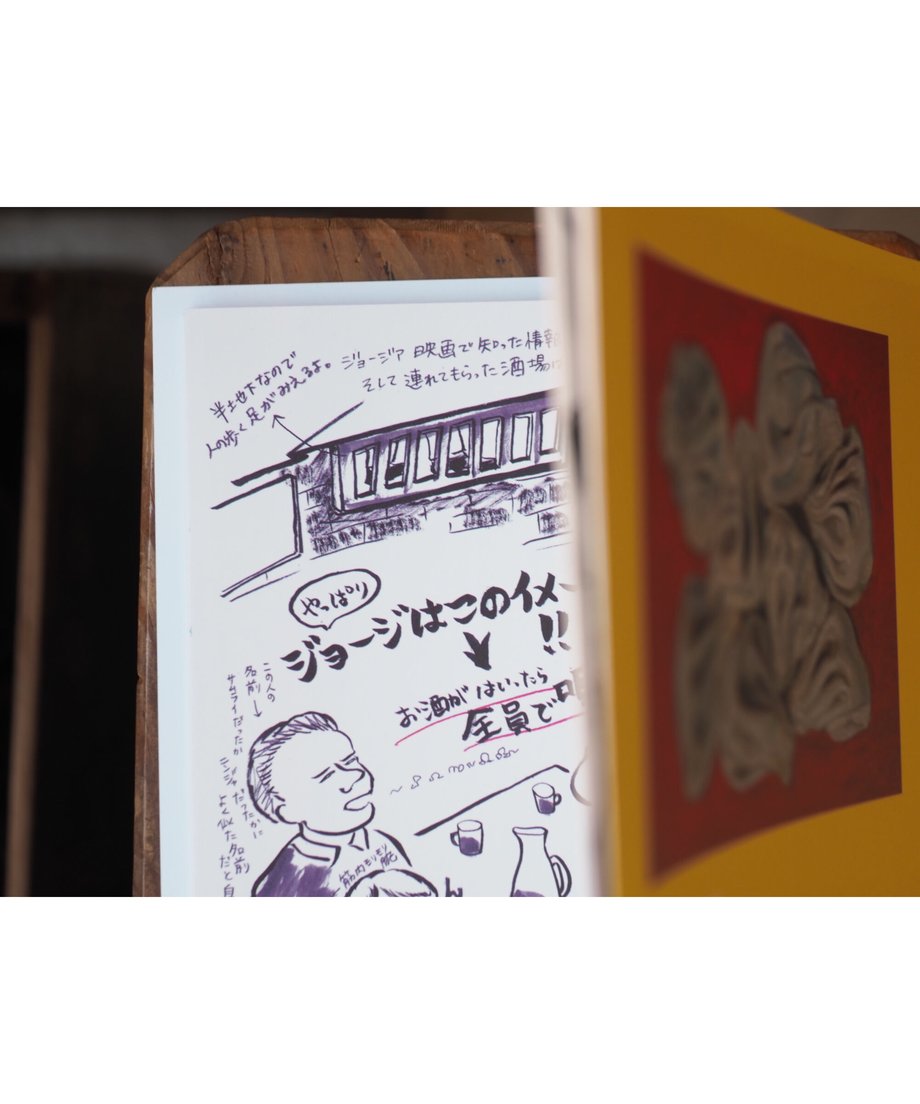 半地下なので
人の歩く足がみえるよ。
ジョージア 映画で知った情報
そして 連れてもらった酒場
やっぱり
ジョージはこのイメー
!!
お酒がはいったら
全員で
この人の
名前→
サムライだったか ニンジャだったかに
よく似た名前
だと自
筋肉モリモリ
腕
ん